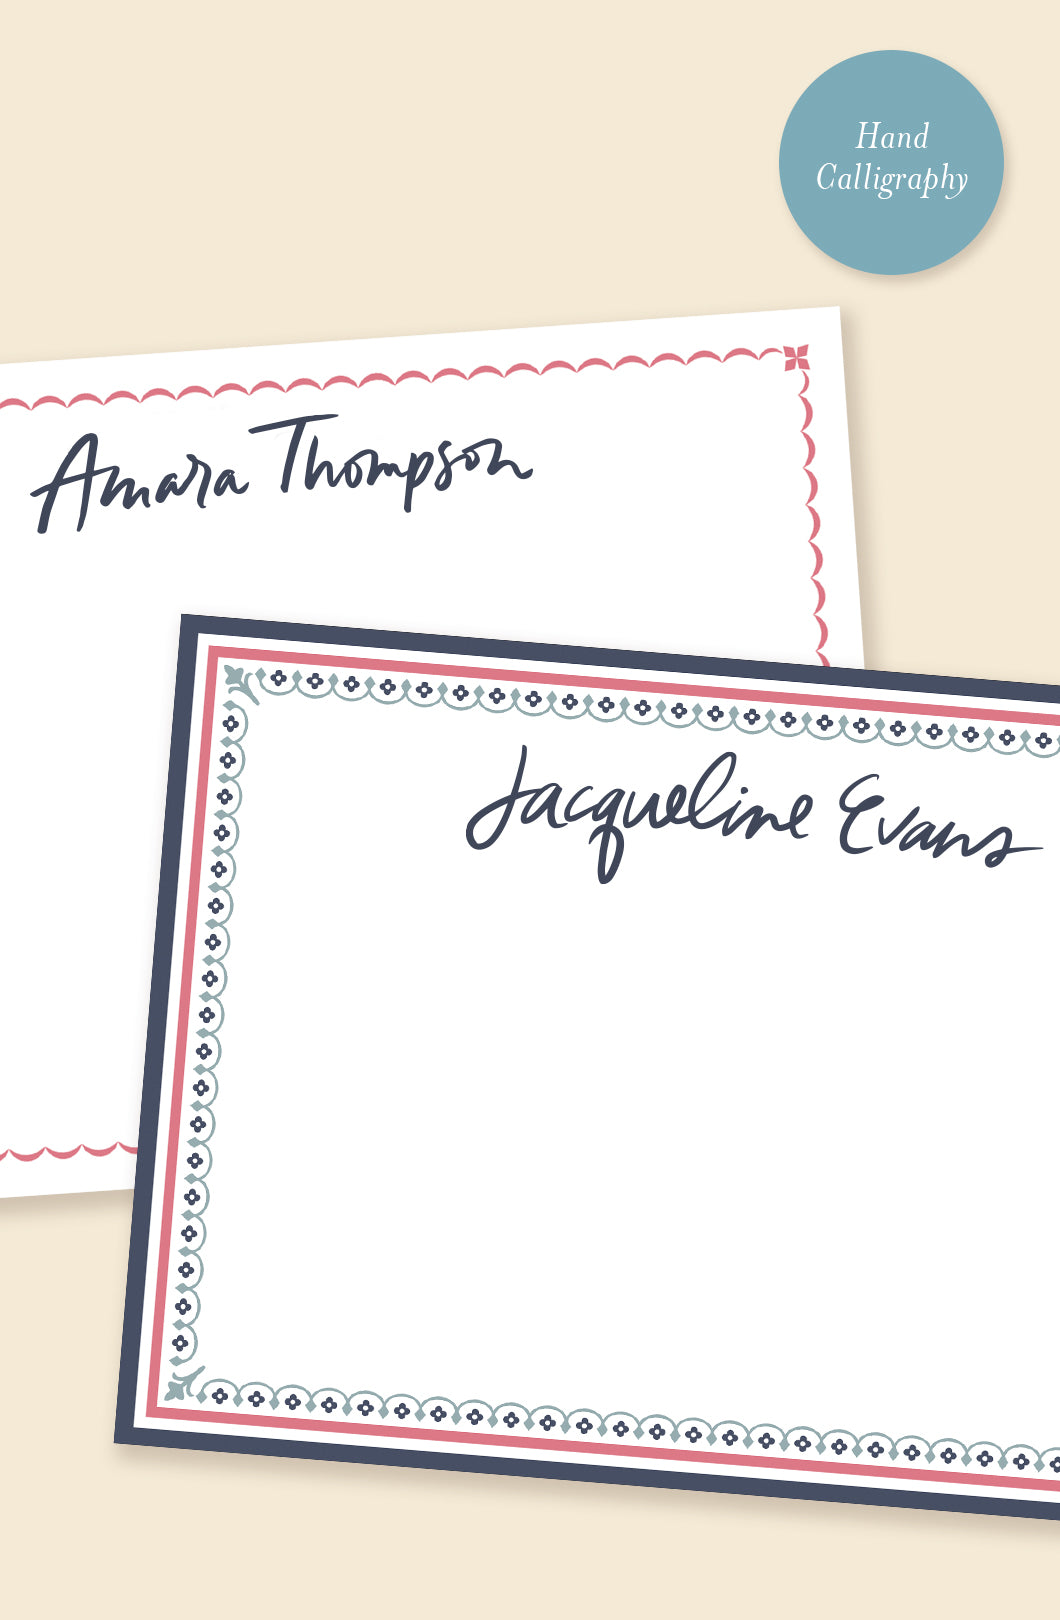 Hand
Calligraphy
Amara Thompson
Jacqueline Evans